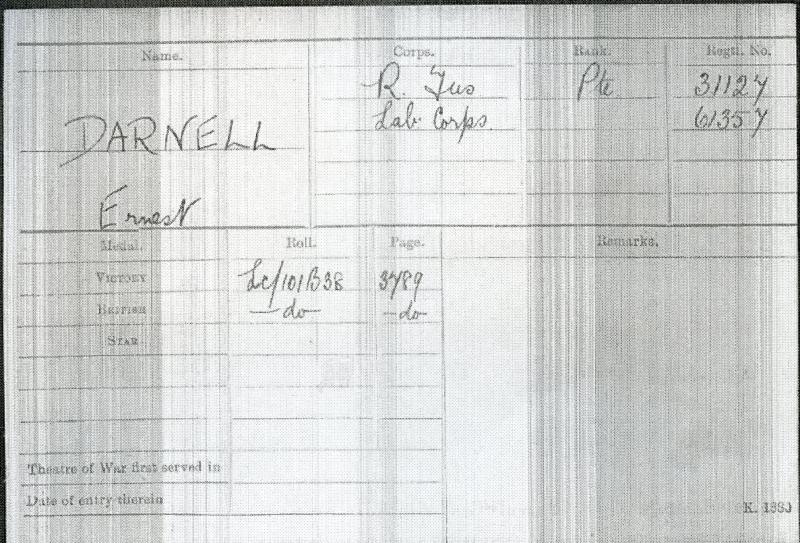 Name. Corps. Rank. Regtl. No.
R. Fus Pte 31127
DARNELL Lab Corps. 61357
Ernest
Medal. Roll. Page. Remarks.
VICTORY Lc/101B38 3789
BRITISH —do— —do—
STAR
Theatre of War first served in
Date of entry therein
K. 1380